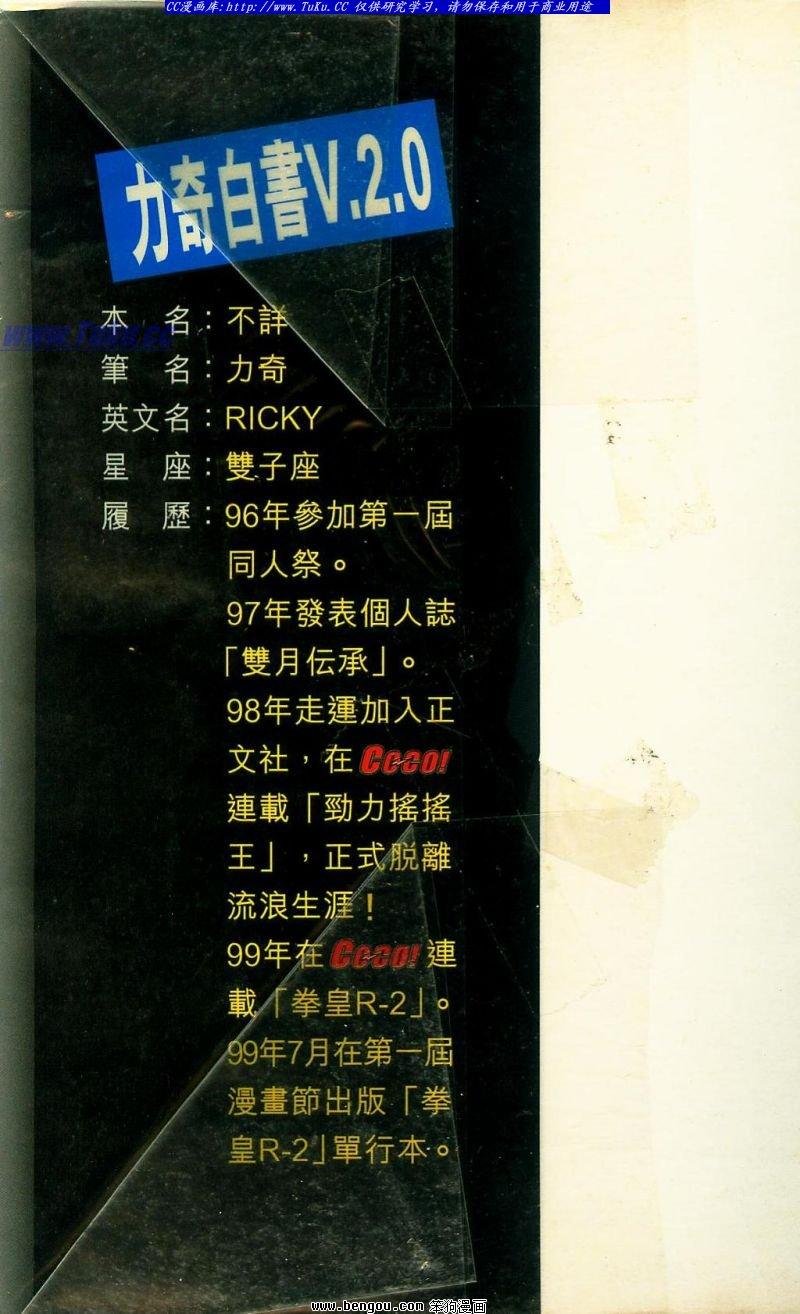 CC漫画库:http://www.TuKu.CC 仅供研究学习，请勿保存和用于商业用途
力奇白書V.2.0
本　名：不詳
WWW.TUKU.CC
筆　名：力奇
英文名：RICKY
星　座：雙子座
履　歷：96年參加第一屆
同人祭。
97年發表個人誌
「雙月伝承」。
98年走運加入正
文社，在Cocoo!
連載「勁力搖搖
王」，正式脫離
流浪生涯！
99年在Cocoo!連
載「拳皇R-2」。
99年7月在第一屆
漫畫節出版「拳
皇R-2」單行本。
www.bengou.com 笨狗漫画